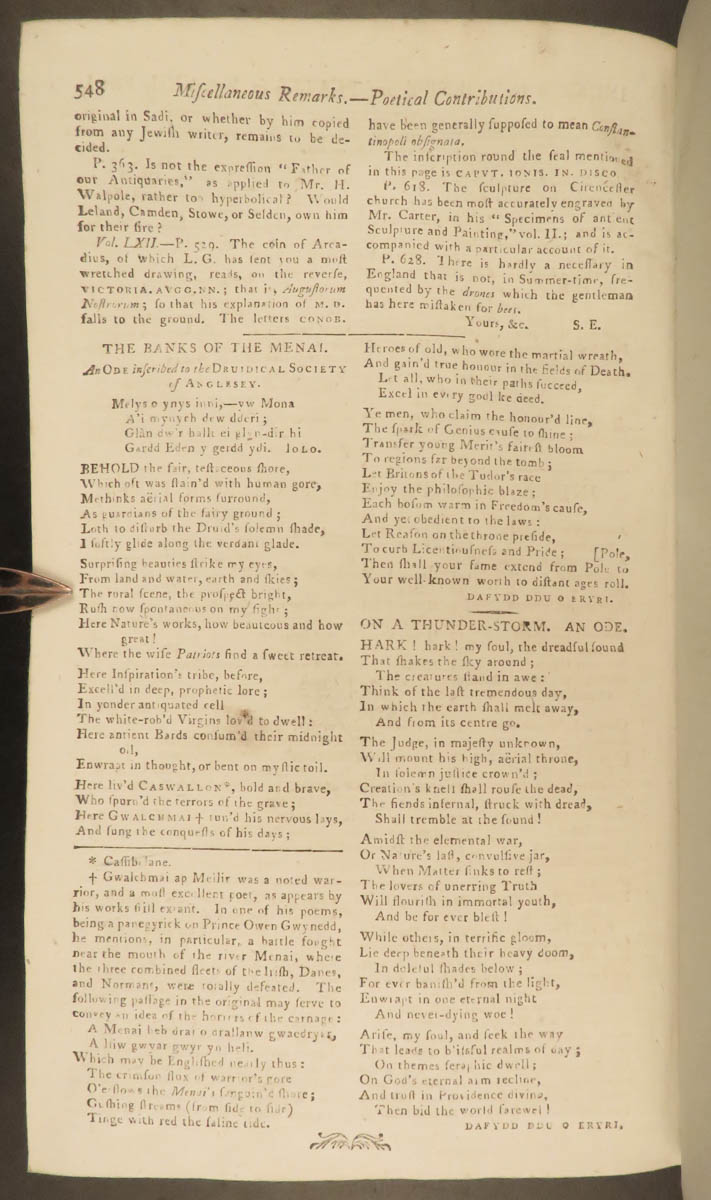 548 Miſcellaneous Remarks.—Poetical Contributions.
original in Sadi, or whether by him copied
from any Jewiſh writer, remains to be de-
cided.
P. 363. Is not the expreſſion “Father of
our Antiquaries,” as applied to Mr. H.
Walpole, rather too hyperbolical? Would
Leland, Camden, Stowe, or Selden, own him
for their ſire?
Vol. LXII.—P. 529. The coin of Arca-
dius, of which L. G. has ſent you a moſt
wretched drawing, reads, on the reverſe,
VICTORIA. AVGG. NN.; that is, Auguſtorum
Noſtrorum; ſo that his explanation of M. D.
falls to the ground. The letters CONOB.
have been generally ſuppoſed to mean Conſtan-
tinopoli obſignata.
The inſcription round the ſeal mentioned
in this page is CAPVT. IONIS. IN. DISCO
P. 618. The ſculpture on Cirenceſter
church has been moſt accurately engraved by
Mr. Carter, in his “Specimens of antient
Sculpture and Painting,” vol. II.; and is ac-
companied with a particular account of it.
P. 628. There is hardly a neceſſary in
England that is not, in Summer-time, fre-
quented by the drones which the gentleman
has here miſtaken for bees.
Yours, &c. S. E.
THE BANKS OF THE MENAI.
An ODE inſcribed to the DRUIDICAL SOCIETY
of ANGLESEY.
Melys o ynys inni,—yw Mona
A'i mynyrh dew dderi;
Glân dw'r hallt ei glan-dir hi
Gardd Eden y gerdd ydi. IOLO.
BEHOLD the fair, teſtaceous ſhore,
Which oft was ſtain'd with human gore,
Methinks aërial forms ſurround,
As guardians of the fairy ground;
Loth to diſturb the Druid's ſolemn ſhade,
I ſoftly glide along the verdant glade.
Surpriſing beauties ſtrike my eyes,
From land and water, earth and ſkies;
The rural ſcene, the proſpect bright,
Ruſh now ſpontaneous on my ſight;
Here Nature's works, how beauteous and how
great!
Where the wiſe Patriots find a ſweet retreat.
Here Inſpiration's tribe, before,
Excell'd in deep, prophetic lore;
In yonder antiquated cell
The white-rob'd Virgins lov'd to dwell:
Here antient Bards conſum'd their midnight
oil,
Enwrapt in thought, or bent on myſtic toil.
Here liv'd CASWALLON*, bold and brave,
Who ſpurn'd the terrors of the grave;
Here GWALCHMAI † tun'd his nervous lays,
And ſung the conqueſts of his days;
* Caſſibelane.
† Gwalchmai ap Meilir was a noted war-
rior, and a moſt excellent poet, as appears by
his works ſtill extant. In one of his poems,
being a panegyrick on Prince Owen Gwynedd,
he mentions, in particular, a battle fought
near the mouth of the river Menai, where
the three combined fleets of the Iriſh, Danes,
and Normans, were totally defeated. The
following paſſage in the original may ſerve to
convey an idea of the horrors of the carnage:
A Menai heb drai o drallanw gwaedryar,
A lliw gwyar gwyr yn heli.
Which may be Engliſhed nearly thus:
The crimſon flux of warrior's gore
O'erflows the Menai's ſanguin'd ſhore;
Guſhing ſtreams (from ſide to ſide)
Tinge with red the ſaline tide.
Heroes of old, who wore the martial wreath,
And gain'd true honour in the fields of Death.
Let all, who in their paths ſucceed,
Excel in every godlike deed.
Ye men, who claim the honour'd line,
The ſpark of Genius cauſe to ſhine;
Transfer young Merit's faireſt bloom
To regions far beyond the tomb;
Let Britons of the Tudor's race
Enjoy the philoſophic blaze;
Each boſom warm in Freedom's cauſe,
And yet obedient to the laws:
Let Reaſon on the throne preſide,
To curb Licentiouſneſs and Pride; [Pole,
Then ſhall your fame extend from Pole to
Your well-known worth to diſtant ages roll.
DAFYDD DDU O ERYRI.
ON A THUNDER-STORM. AN ODE.
HARK! hark! my ſoul, the dreadful ſound
That ſhakes the ſky around;
The creatures ſtand in awe:
Think of the laſt tremendous day,
In which the earth ſhall melt away,
And from its centre go.
The Judge, in majeſty unknown,
Will mount his high, aërial throne,
In ſolemn juſtice crown'd;
Creation's knell ſhall rouſe the dead,
The fiends infernal, ſtruck with dread,
Shall tremble at the ſound!
Amidſt the elemental war,
Or Nature's laſt, convulſive jar,
When Matter ſinks to reſt;
The lovers of unerring Truth
Will flouriſh in immortal youth,
And be for ever bleſt!
While others, in terrific gloom,
Lie deep beneath their heavy doom,
In doleful ſhades below;
For ever baniſh'd from the light,
Enwrapt in one eternal night
And never-dying woe!
Ariſe, my ſoul, and ſeek the way
That leads to bliſsful realms of day;
On themes ſeraphic dwell;
On God's eternal arm recline,
And truſt in Providence divine,
Then bid the world farewel!
DAFYDD DDU O ERYRI.